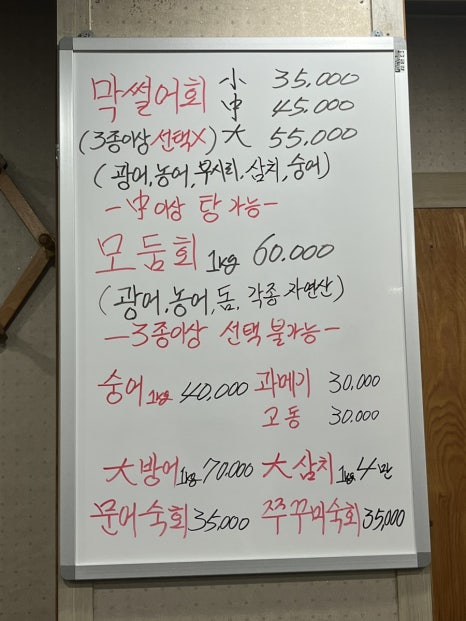 막썰어회 小 35.000
中 45.000
(3종이상 선택X) 大 55.000
(광어,농어,무시리,삼치,숭어)
-中이상 탕 가능-
모둠회 1kg 60.000
(광어,농어,돔,각종 자연산)
-3종이상 선택 불가능-
숭어 1kg 40,000 과메기 30,000
고동 30.000
大방어 1kg 70000 大삼치 1kg 4만
문어숙회 35,000 쭈꾸미숙회 35,000